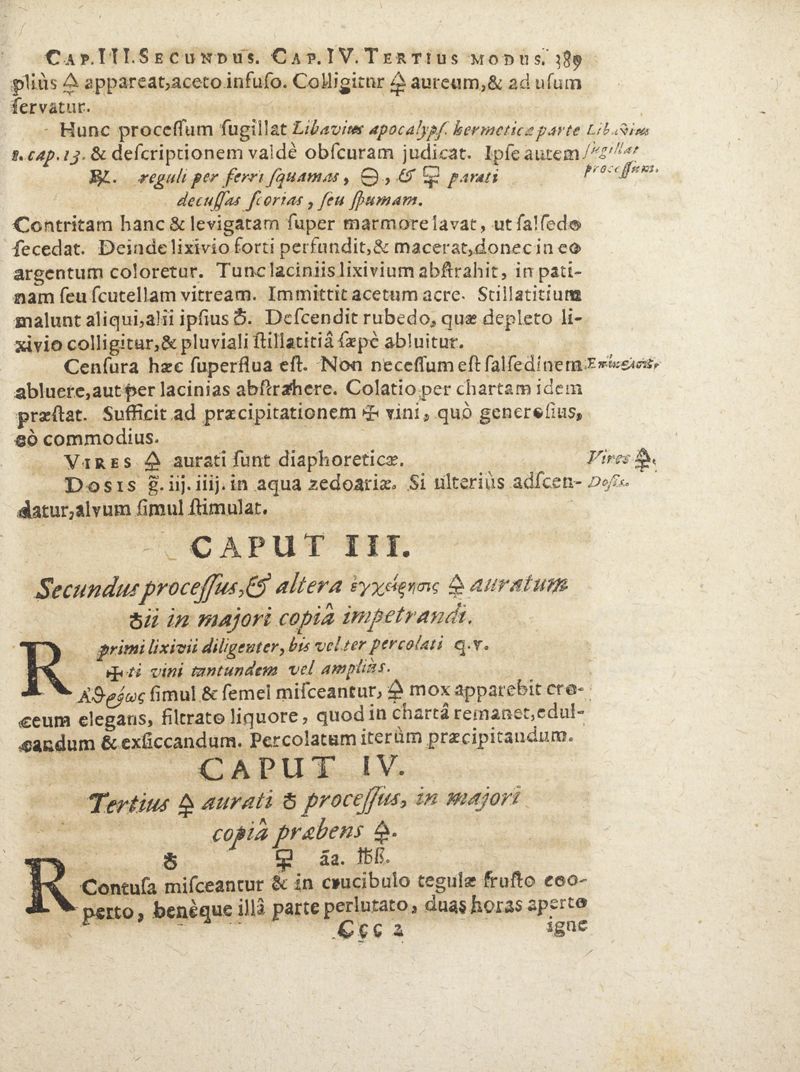 CAP.III.SECUNDUS. CAP.IV.TERTIUS MODUS. 389
pliùs 🜍 appareat,aceto infuſo. Colligitur 🜍 aureum,& ad uſum
ſervatur.
Hunc proceſſum ſugillat Libavius apocalypſ. hermeticæ parte
2. cap. 13. & deſcriptionem valdè obſcuram judicat. Ipſe autem
Libavius
ſugillat
proceſſum.
℞. reguli per ferri ſquamas, 🜔, & 🜿 parati
decuſſas ſcorias, ſeu ſpumam.
Contritam hanc & levigatam ſuper marmore lavat, ut ſalſedo
ſecedat. Deinde lixivio forti perfundit,& macerat,donec in eo
argentum coloretur. Tunc laciniis lixivium abſtrahit, in pati-
nam ſeu ſcutellam vitream. Immittit acetum acre. Stillatitium
malunt aliqui,alii ipſius ♁. Deſcendit rubedo, quæ depleto li-
xivio colligitur,& pluviali ſtillatitiâ ſæpè abluitur.
Cenſura hæc ſuperflua eſt. Non neceſſum eſt ſalſedinem
abluere,aut per lacinias abſtrahere. Colatio per chartam idem
præſtat. Sufficit ad præcipitationem 🜊 vini, quò generoſius,
eò commodius.
VIRES 🜍 aurati ſunt diaphoreticæ.
Vires 🜍.
DOSIS g̃. iij. iiij. in aqua zedoariæ. Si ulteriùs adſcen-
Doſis.
datur,alvum ſimul ſtimulat.
CAPUT III.
Secundus proceſſus,& altera ἐγχείρησις 🜍 auratum
♁ii in majori copiâ impetrandi.
R primi lixivii diligenter, bis vel ter percolati q.v.
🜊ti vini tantundem vel ampliùs.
Ἀθρόως ſimul & ſemel miſceantur, 🜍 mox apparebit cro-
ceum elegans, filtrato liquore, quod in chartâ remanet,edul-
candum & exſiccandum. Percolatum iterùm præcipitandum.
CAPUT IV.
Tertius 🜍 aurati ♁ proceſſus, in majori
copiâ præbens 🜍.
R ♁ 🜿 ãa. ℔ß.
Contuſa miſceantur & in crucibulo tegulæ fruſto coo-
perto, benèque illâ parte perlutato, duas horas aperto
Ccc 2 igne